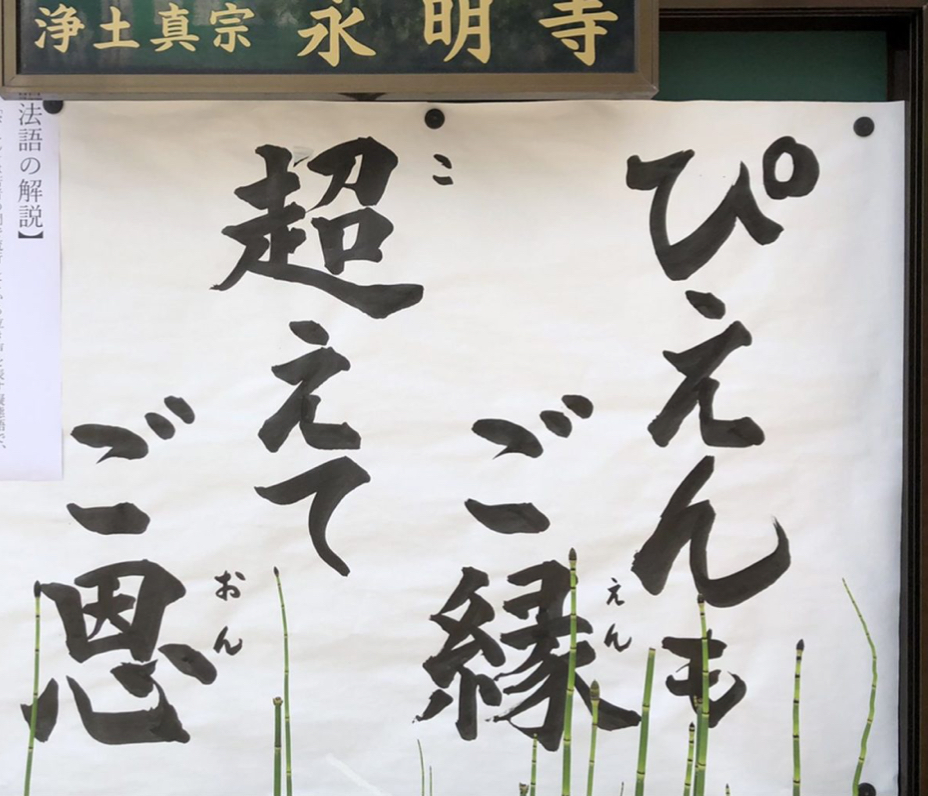 浄土真宗 永明寺
ぴえんも
ご縁
えん
超えて
こ
ご恩
おん
法語の解説】